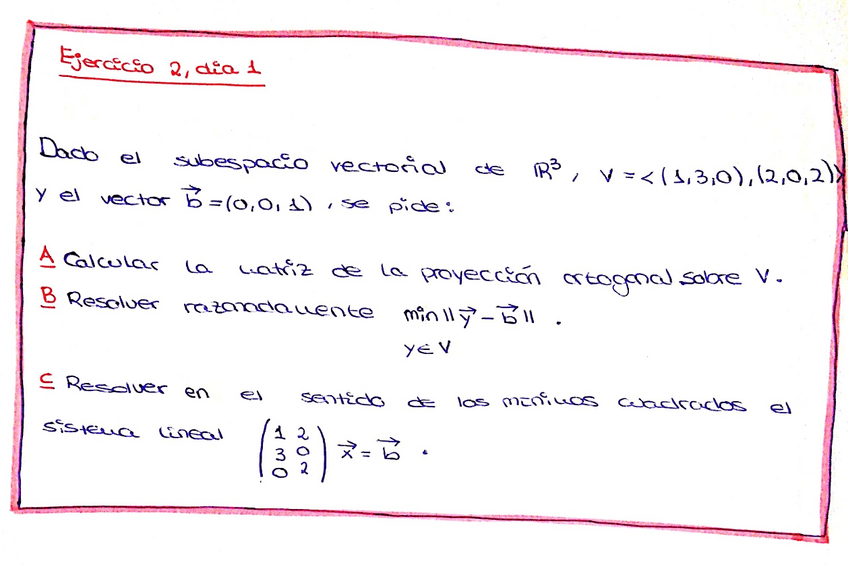 Ejercicio 2, dia 1
Dado el subespacio vectorial de ℝ³, V = <(1,3,0),(2,0,2)>
y el vector b⃗=(0,0,1), se pide:
A Calcular la matriz de la proyección ortogonal sobre V.
B Resolver razonadamente min ||y⃗ - b⃗|| .
y∈V
C Resolver en el sentido de los mínimos cuadrados el
sistema lineal (1 2
3 0
0 2) x⃗ = b⃗ .